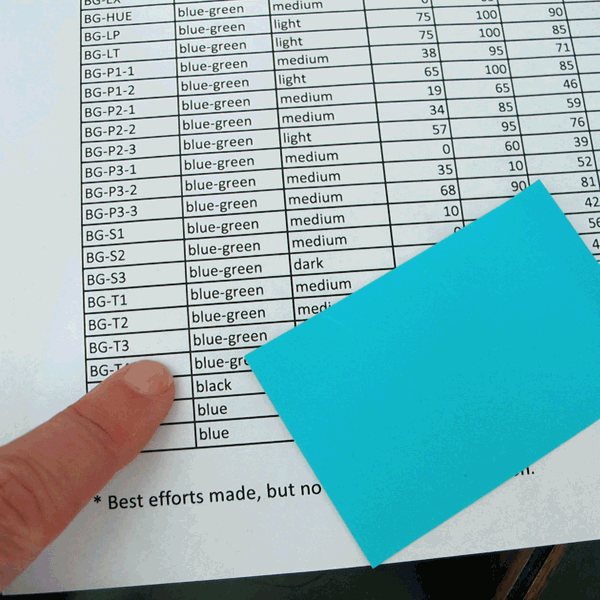 BG-HUE blue-green medium
BG-LP blue-green light 75 100 90
BG-LT blue-green light 75 100 85
BG-P1-1 blue-green medium 38 95 71
BG-P1-2 blue-green light 65 100 85
BG-P2-1 blue-green medium 19 65 46
BG-P2-2 blue-green medium 34 85 59
BG-P2-3 blue-green light 57 95 76
BG-P3-1 blue-green medium 0 60 39
BG-P3-2 blue-green medium 35 10 52
BG-P3-3 blue-green medium 68 90 81
BG-S1 blue-green medium 10 42
BG-S2 blue-green medium
BG-S3 blue-green dark
BG-T1 blue-green medium
BG-T2 blue-green
BG-T3 blue-green
black
blue
blue
* Best efforts made, but no